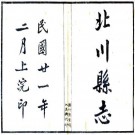 北川縣志
民國廿一年
二月上浣印